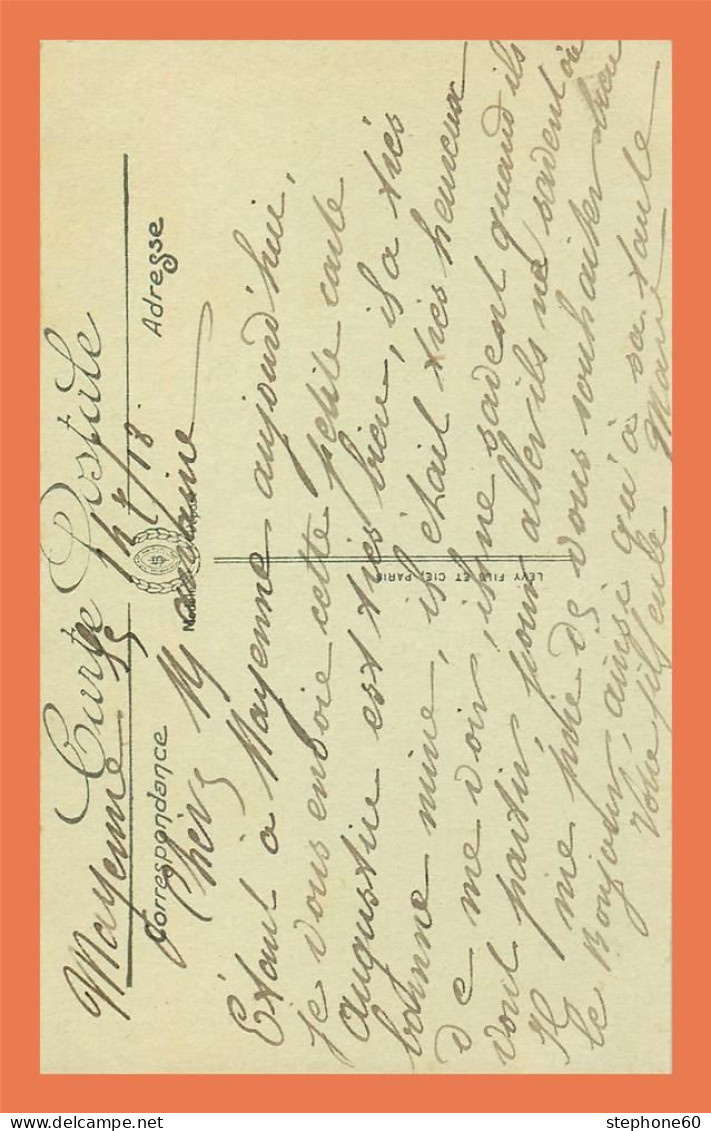 Carte Postale
Mayenne
Correspondance
Adresse
LEVY FILS ET CIE, PARIS
Chère Marraine
Étant à Mayenne aujourd'hui,
je vous envoie cette petite carte
augustine est très bien, il a très
bonne mine, il était très heureux
de me voir, ils ne savent quand ils
vont partir, pour aller ils ne savent où
Il me prie de vous souhaiter bien
le Bonjour, ainsi qu'à sa tante
Votre filleule Marie
stephone60